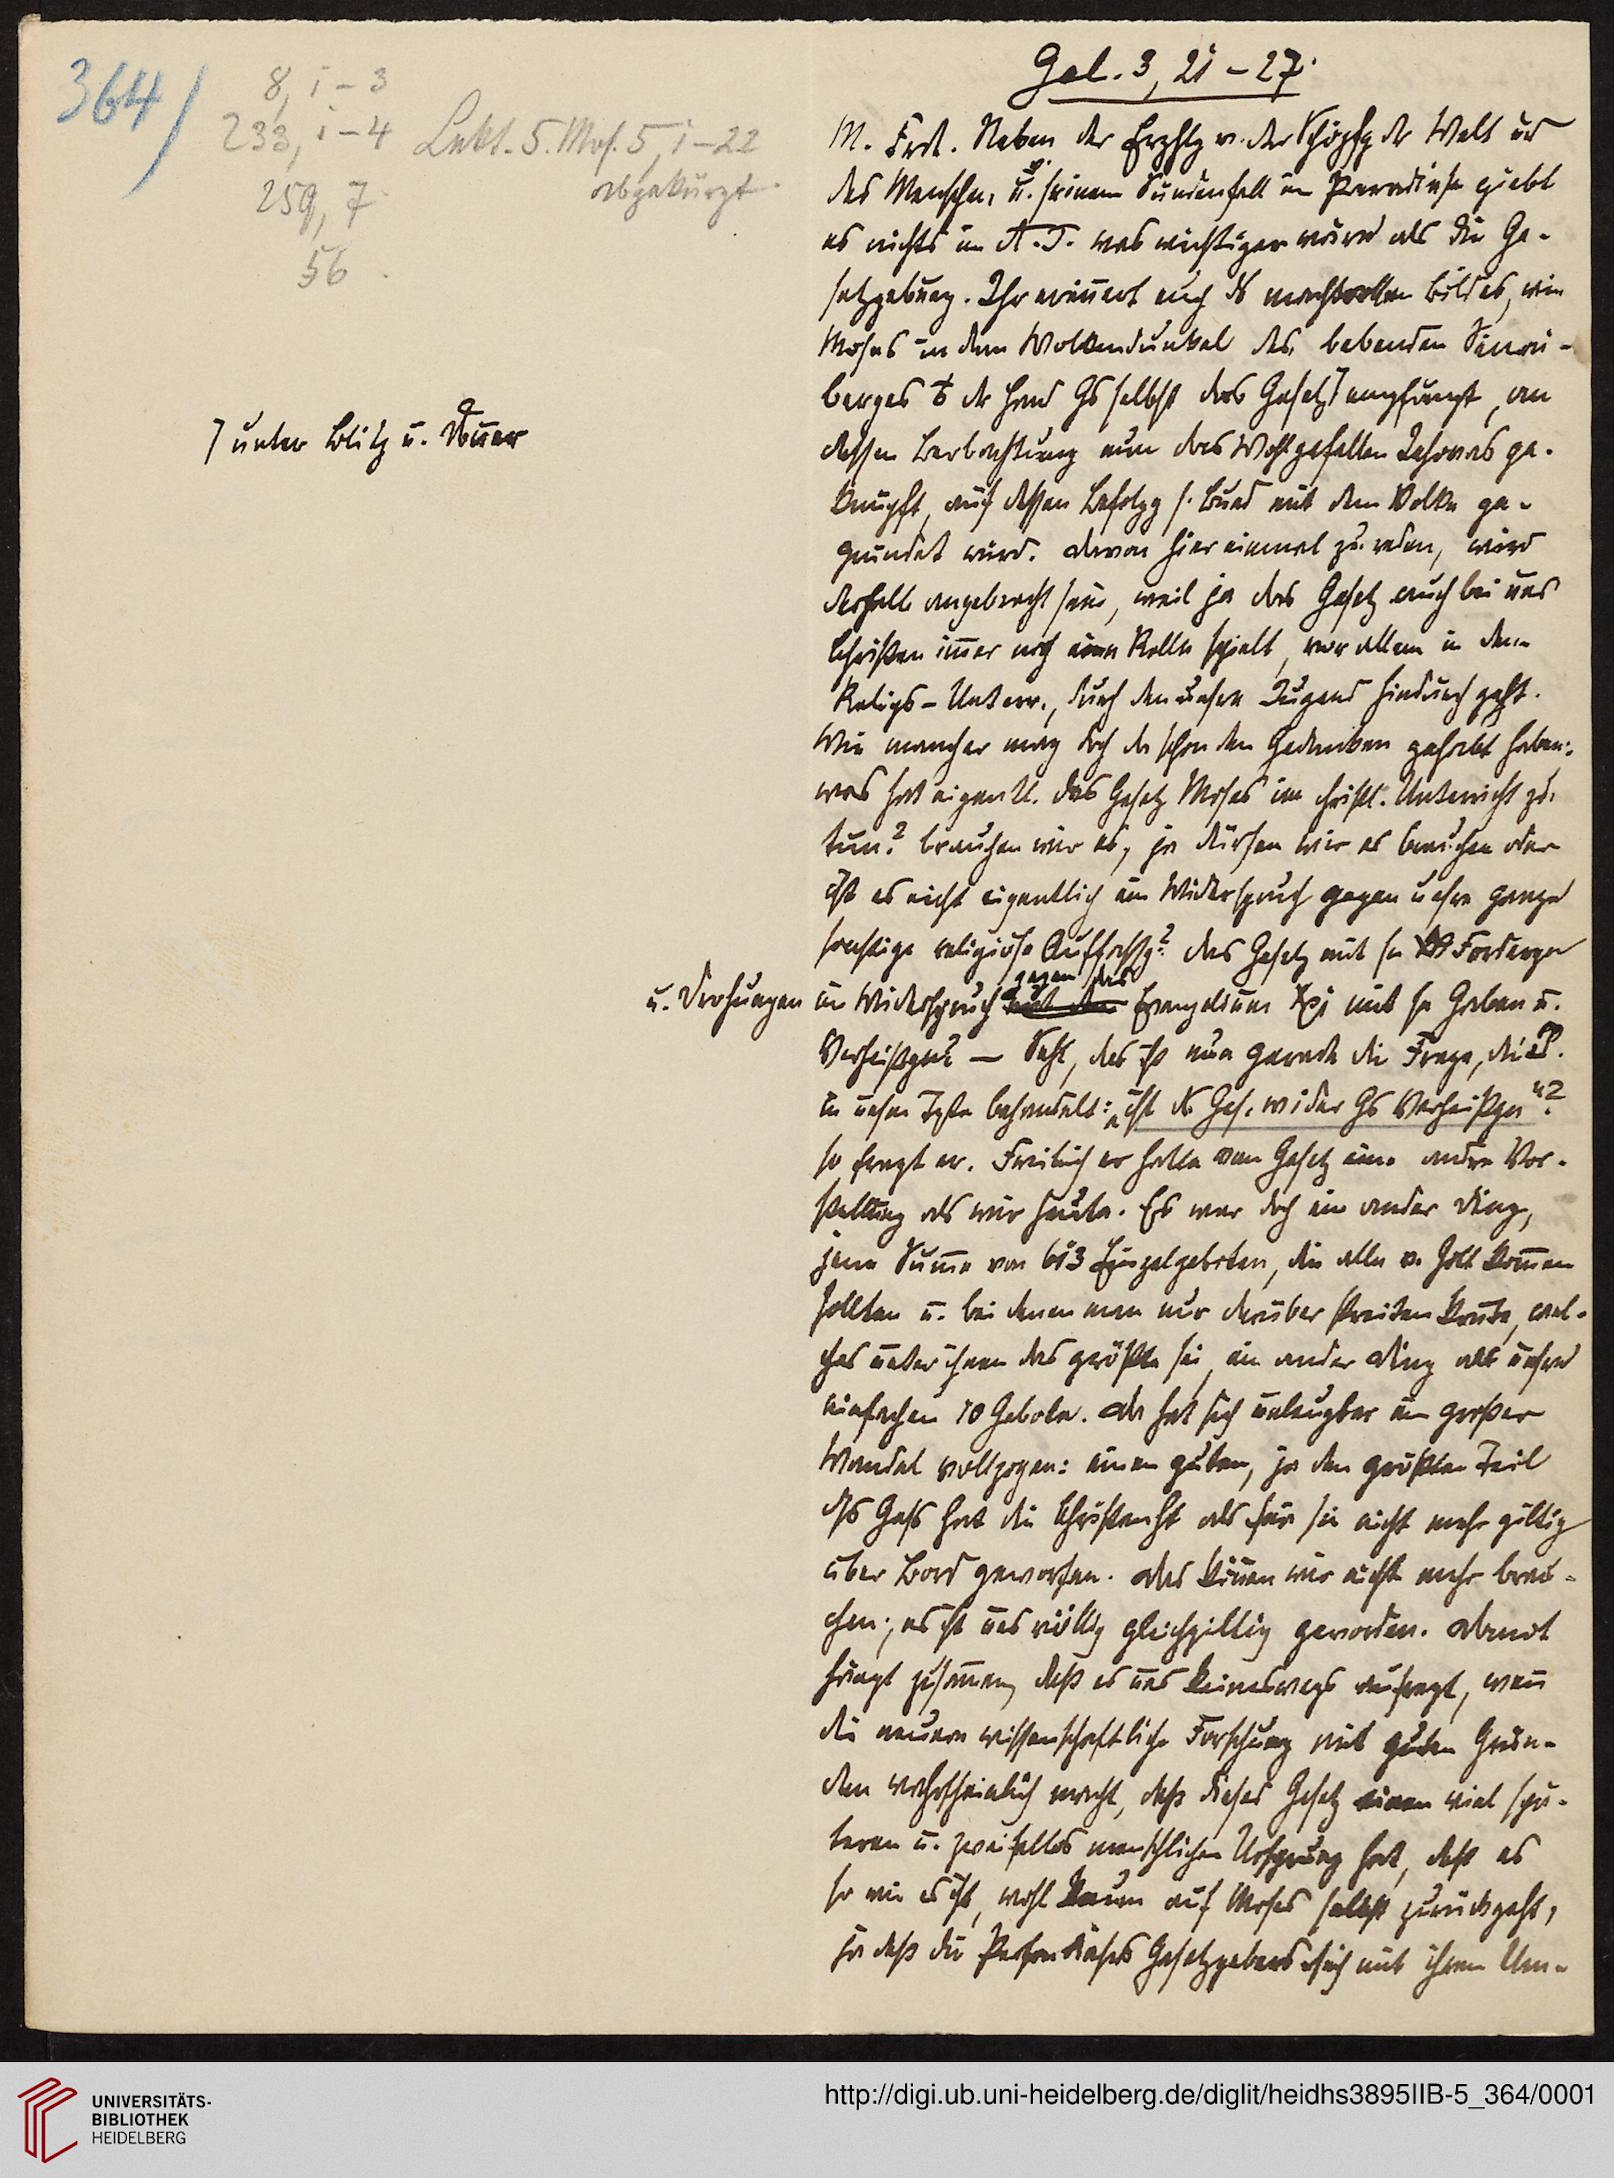 364/
8, 1-3
233, 1-4 Lekt. 5. Mos. 5, 1-22
abgekürzt.
259, 7.
56.
Gal. 3, 21-27.
M. Frd. Neben der Erzhlg v. der Schöpfg der Welt ud
des Menschen, u. v. seinem Sündenfall im Paradiese giebt
es nichts im A.T. was wichtiger würd als die Ge-
setzgebung. Ihr erinnert euch ds machtvollen Bildes, wie
Moses in dem Wolkendunkel des bebenden Sinai-
berges der Hand Gs selbst das Gesetz ⌉ empfängt, an
⌉ unter Blitz u. Donner
dessen Beobachtung nun das Wohlgefallen Jahwes ge-
knüpft, auf dessen Befolgg s. Bund mit dem Volke ge-
gründet wird. Davon hier einmal zu reden, wird
deshalb angebracht sein, weil ja das Gesetz auch bei uns
Christen immer noch eine Rolle spielt, vor allem in dem
Religs-Unterr., durch den unsere Jugend hindurch geht.
Wie mancher mag doch da schon den Gedanken gehabt haben:
was hat eigentl. das Gesetz Moses im christl. Unterricht zu
tun? brauchen wir es, ja dürfen wir es brauchen oder
ist es nicht eigentlich ein Widerspruch gegen unsre ganze
sonstige religiöse Auffassg? das Gesetz mit sn Fordergen
u. Drohungen im Widerspruch gegen das Evangelium Xi mit sn Gaben u.
Verheißgen? — Seht, das ist nun gerade die Frage, die P.
in unsrm Texte behandelt: „ist ds Ges. wider Gs Verheißgen"?
so fragt er. Freilich er hatte vom Gesetz eine andre Vor-
stellung als wir heute. Es war doch ein ander Ding,
jene Summe von 613 Einzelgeboten, die alle v. Gott kommen
sollten u. bei denen man nur darüber streiten konnte, wel-
ches unter ihnen das größte sei, ein ander Ding als unsre
einfachen 10 Gebote. Da hat sich unleugbar ein großer
Wandel vollzogen: einen guten, ja den größten Teil
ds Gess hat die Christenht als für sie nicht mehr giltig
über Bord geworfen. Das können wir nicht mehr brau-
chen; es ist uns völlig gleichgiltig geworden. Damit
hängt zusammen, daß es uns keineswegs aufregt, wenn
die neuere wissenschaftliche Forschung mit guten Grün-
den wahrscheinlich macht, daß dieses Gesetz einen viel spä-
teren u. zweifellos menschlichen Ursprung hat, daß es
so wie es ist, wohl kaum auf Moses selbst zurückgeht,
ja daß die Person dieses Gesetzgebers sich mit ihrem Um-
UNIVERSITÄTS-
BIBLIOTHEK
HEIDELBERG
http://digi.ub.uni-heidelberg.de/diglit/heidhs3895IIB-5_364/0001